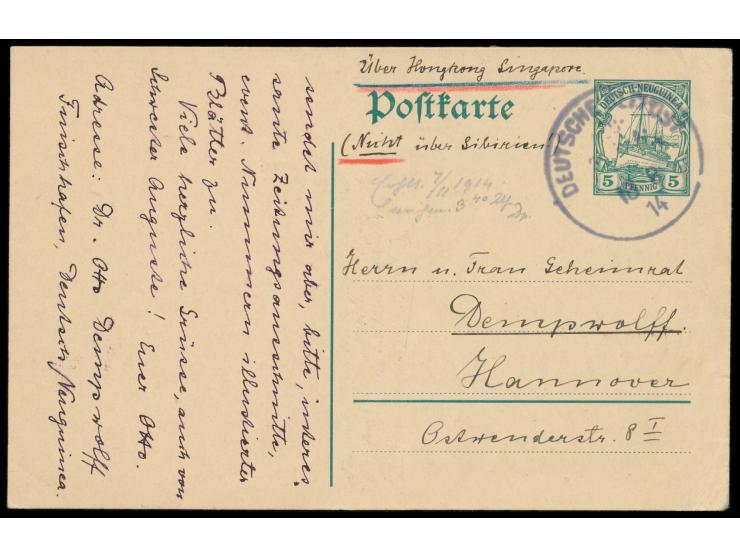 Über Hongkong Singapore.
Postkarte
(Nicht über Sibirien!)
DEUTSCH-NEUGUINEA
5 PFENNIG 5
DEUTSCHE
14
1914
Herrn u. Frau Geheimrat
Dempwolff.
Hannover
Ostwenderstr. 8 I
sendet mir aber, bitte, interes-
sante Zeitungsausschnitte,
event. Nummern illustrierter
Blätter zu.
Viele herzliche Grüsse, auch von
Schwester Auguste! Euer Otto.
Adresse: Dr. Otto Dempwolff
Finschhafen, Deutsch Neuguinea.